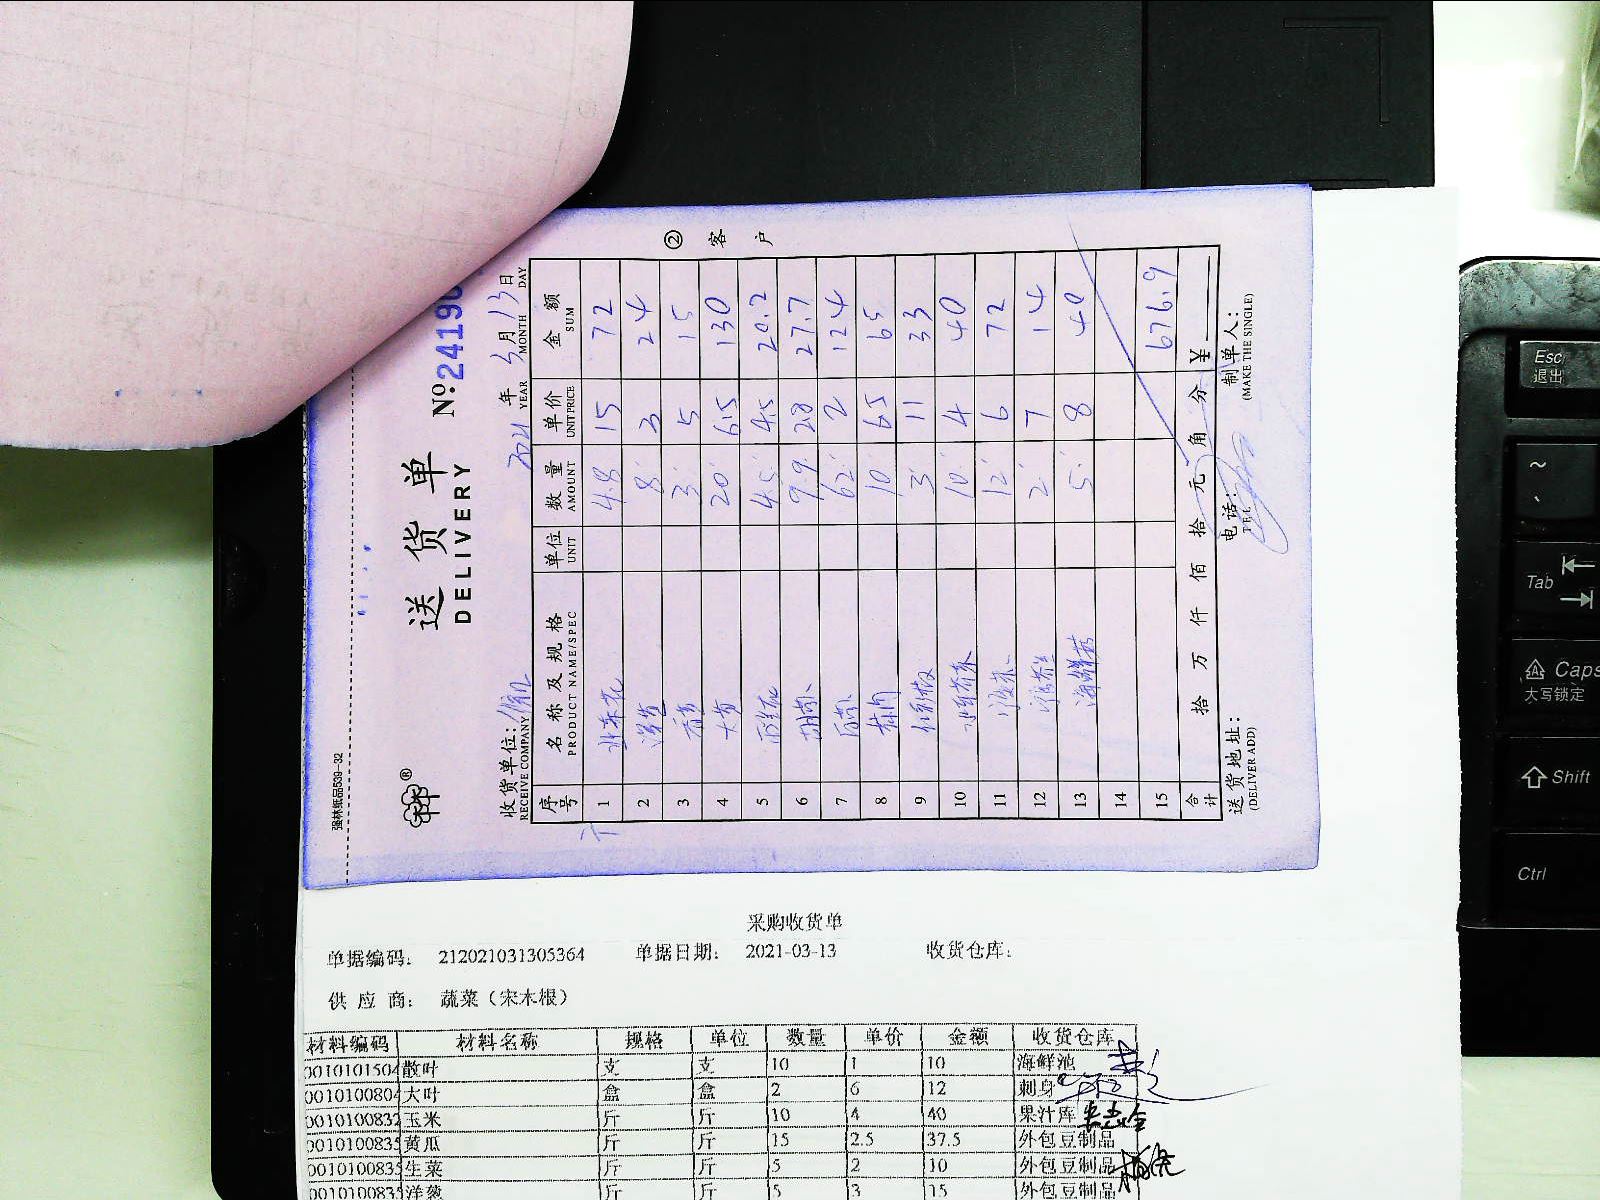 强林纸品539-32
送货单 No:24190
DELIVERY
收货单位: 2021年3月13日
RECEIVE COMPANY YEAR MONTH DAY
序号 名称及规格 单位 数量 单价 金额
PRODUCT NAME/SPEC UNIT AMOUNT UNIT PRICE SUM
1 4.8 15 72
2 8 3 24
3 香菜 3 5 15
4 20 6.5 130
5 西兰花 4.5 4.5 20.2
6 9.9 2.8 27.7
7 62 2 124
8 10 6.5 65
9 3 11 33
10 10 4 40
11 12 6 72
12 2 7 14
13 海鲜菇 5 8 40
14
15 676.9
合计 拾 万 仟 佰 拾 元 角 分 ¥
送货地址: 电话: 制单人:
(DELIVER ADD) TEL (MAKE THE SINGLE)
② 客户
采购收货单
单据编码: 212021031305364 单据日期: 2021-03-13 收货仓库:
供应商: 蔬菜(宋木根)
材料编码 材料名称 规格 单位 数量 单价 金额 收货仓库
0010101504 散叶 支 支 10 1 10 海鲜池
0010100804 大叶 盒 盒 2 6 12 刺身
0010100832 玉米 斤 斤 10 4 40 果汁库
0010100835 黄瓜 斤 斤 15 2.5 37.5 外包豆制品
0010100835 生菜 斤 斤 5 2 10 外包豆制品
0010100835 洋葱 斤 斤 5 3 15 外包豆制品
Esc
退出
~
Tab
Caps
大写锁定
Shift
Ctrl